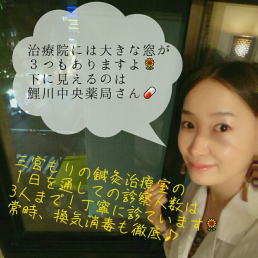 治療院には大きな窓が
３つもありますよ🌻
下に見えるのは
鯉川中央薬局さん💊
三宮もりの鍼灸治療室の
1日を通しての診察人数は
3人まで！丁寧に診ています🌻
常時、換気消毒も徹底♪